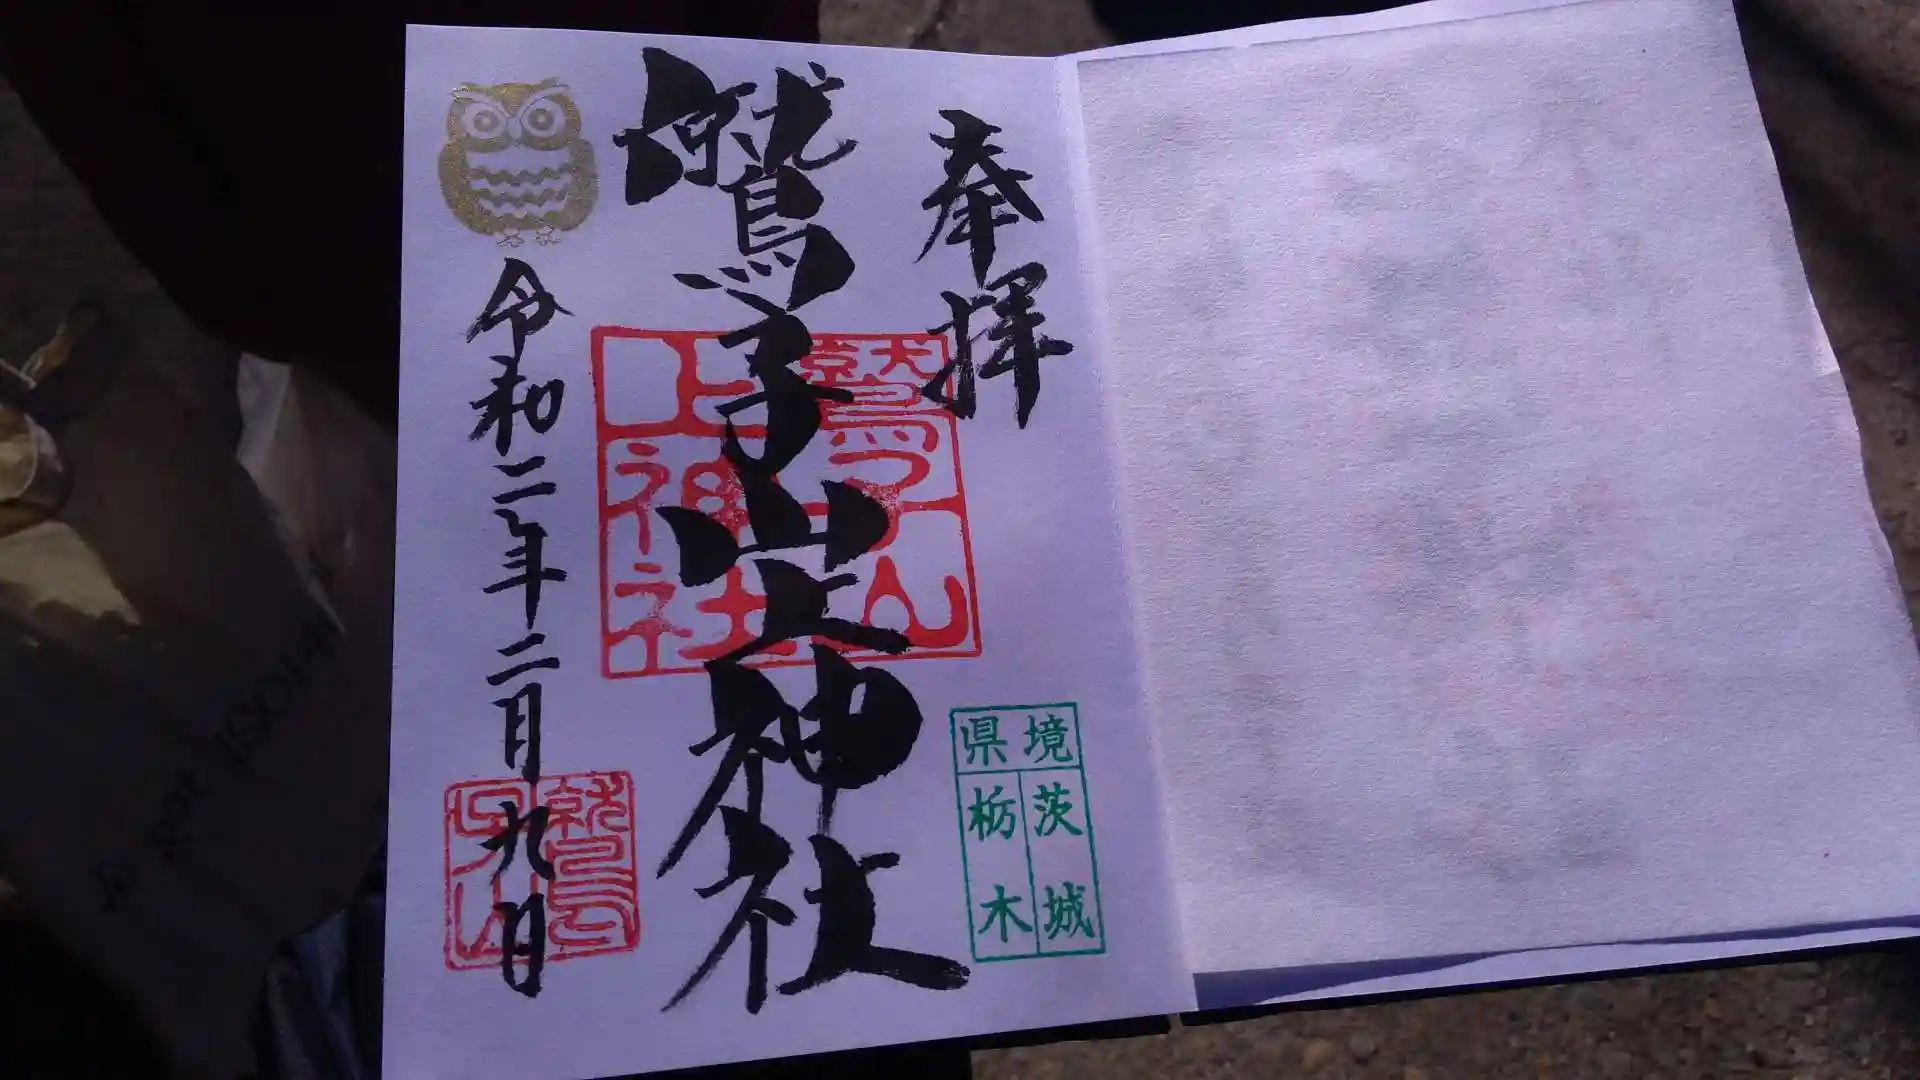 奉拝
鷲子山上神社
令和二年二月九日
鷲子山
上神社
鷲子山
県境
茨城
栃木